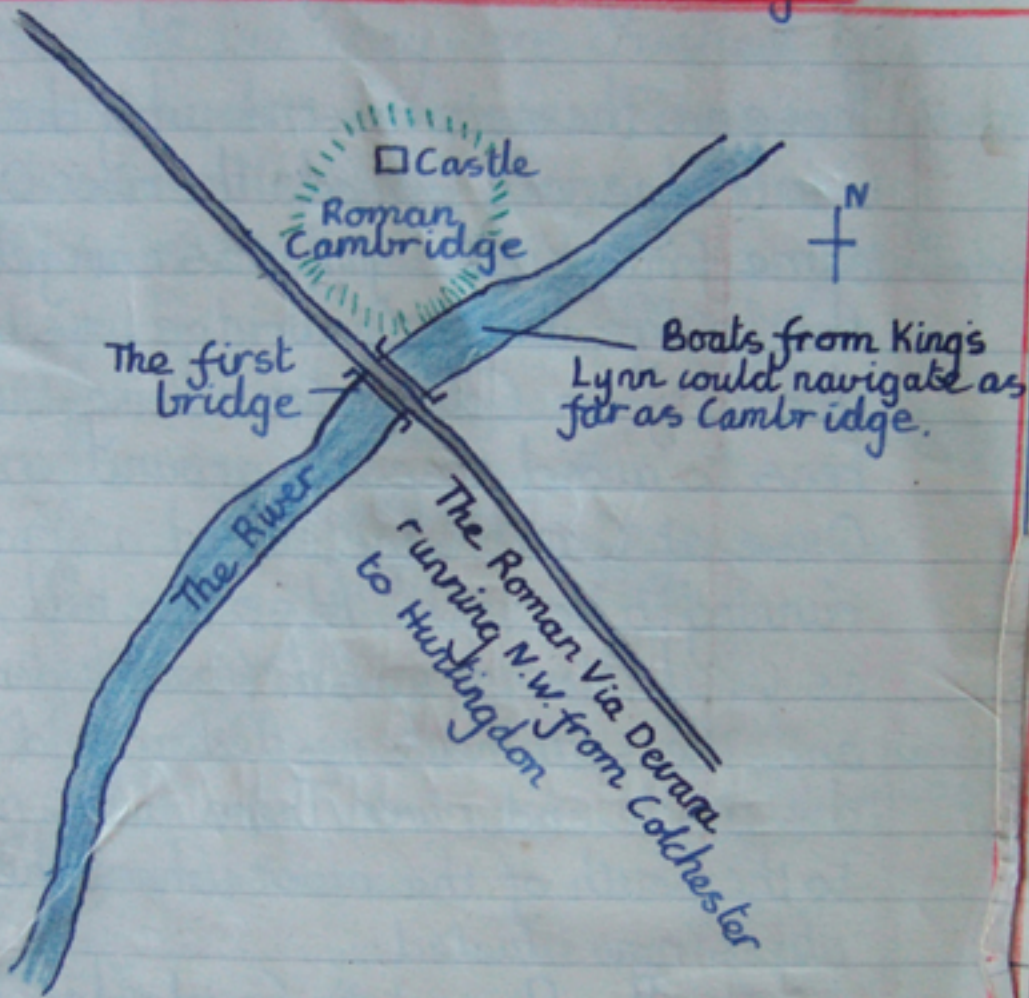 Castle
Roman
Cambridge
N
The first
bridge
Boats from King's
Lynn could navigate as
far as Cambridge.
The River
The Roman Via Devana
running N.W. from Colchester
to Huntingdon